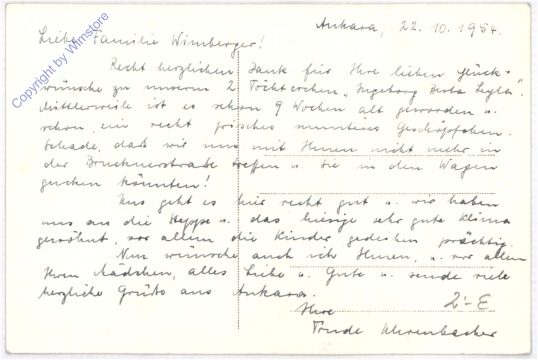 Ankara, 22.10.1954.
Liebe Familie Wimberger!
Recht herzlichen Dank für Ihre lieben Glück-
wünsche zu unserem 2. Töchterchen "Ingeborg Leyla".
Mittlerweile ist es schon 9 Wochen alt geworden u.
schon ein recht frisches munteres Geschöpfchen.
Schade, daß wir uns mit Ihnen nicht mehr in
der Brucknerstraße treffen u. Sie in den Wagen
gucken könnten!
Uns geht es hier recht gut u. wir haben
uns an die Steppe u. das hiesige sehr gute Klima
gewöhnt, vor allem die Kinder gedeihen prächtig.
Nun wünsche auch ich Ihnen, u. vor allem
Ihrem Mädchen, alles Liebe u. Gute u. sende viele
herzliche Grüße aus Ankara.
Ihre
Trude
2.-E
Copyright by Wimstore